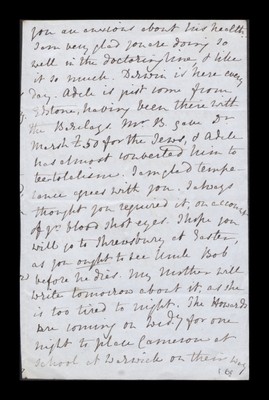 you are anxious about his health.
I am very glad you are doing so
well in the doctoring line, & like
it so much. Darwin is here every
day. Adèle is just come from
Edstone, having been there with
the Barclays Mr. B. gave Dr
Marsh £50 for the Jews, & Adele
has almost converted him to
teetotalesme. I am glad tempe-
rance agrees with you. I always
thought you required it, on account
of yr. blood shot eyes. I hope you
will go to Shrewsbury at Easter,
as you ought to see Uncle Bob
before he dies. My Mother will
write tomorrow about it, as she
is too tired to night. The Howards
are coming on Wedy for one
night to place Cameron at
school at Warwick on their way